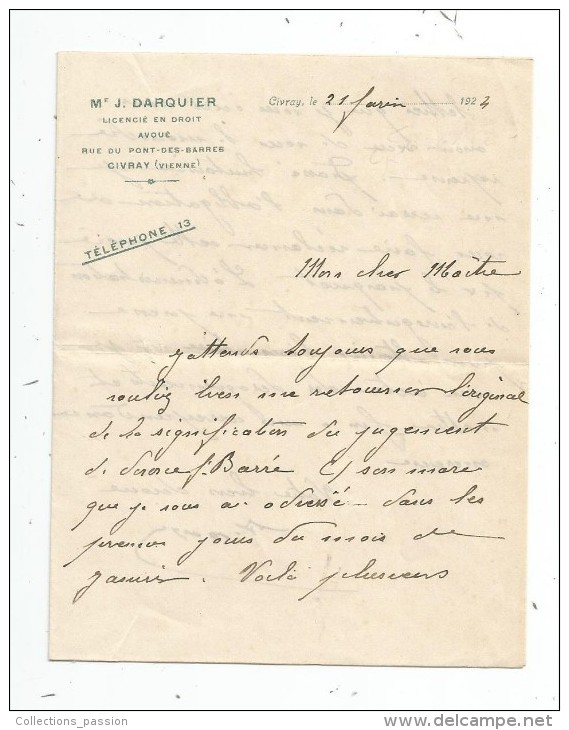 Mᵉ J. DARQUIER
LICENCIÉ EN DROIT
AVOUÉ
RUE DU PONT-DES-BARRES
CIVRAY (VIENNE)
TÉLÉPHONE 13
Civray, le 21 1924
Mon cher Maître
J'attends toujours que vous
vouliez bien me retourner l'original
de la signification du jugement
de divorce f. Barré C/ son mare
que je vous ai adressé dans les
premiers jours du mois de
Janvier. Voilà plusieurs
Collections_passion
http://www.delcampe.net